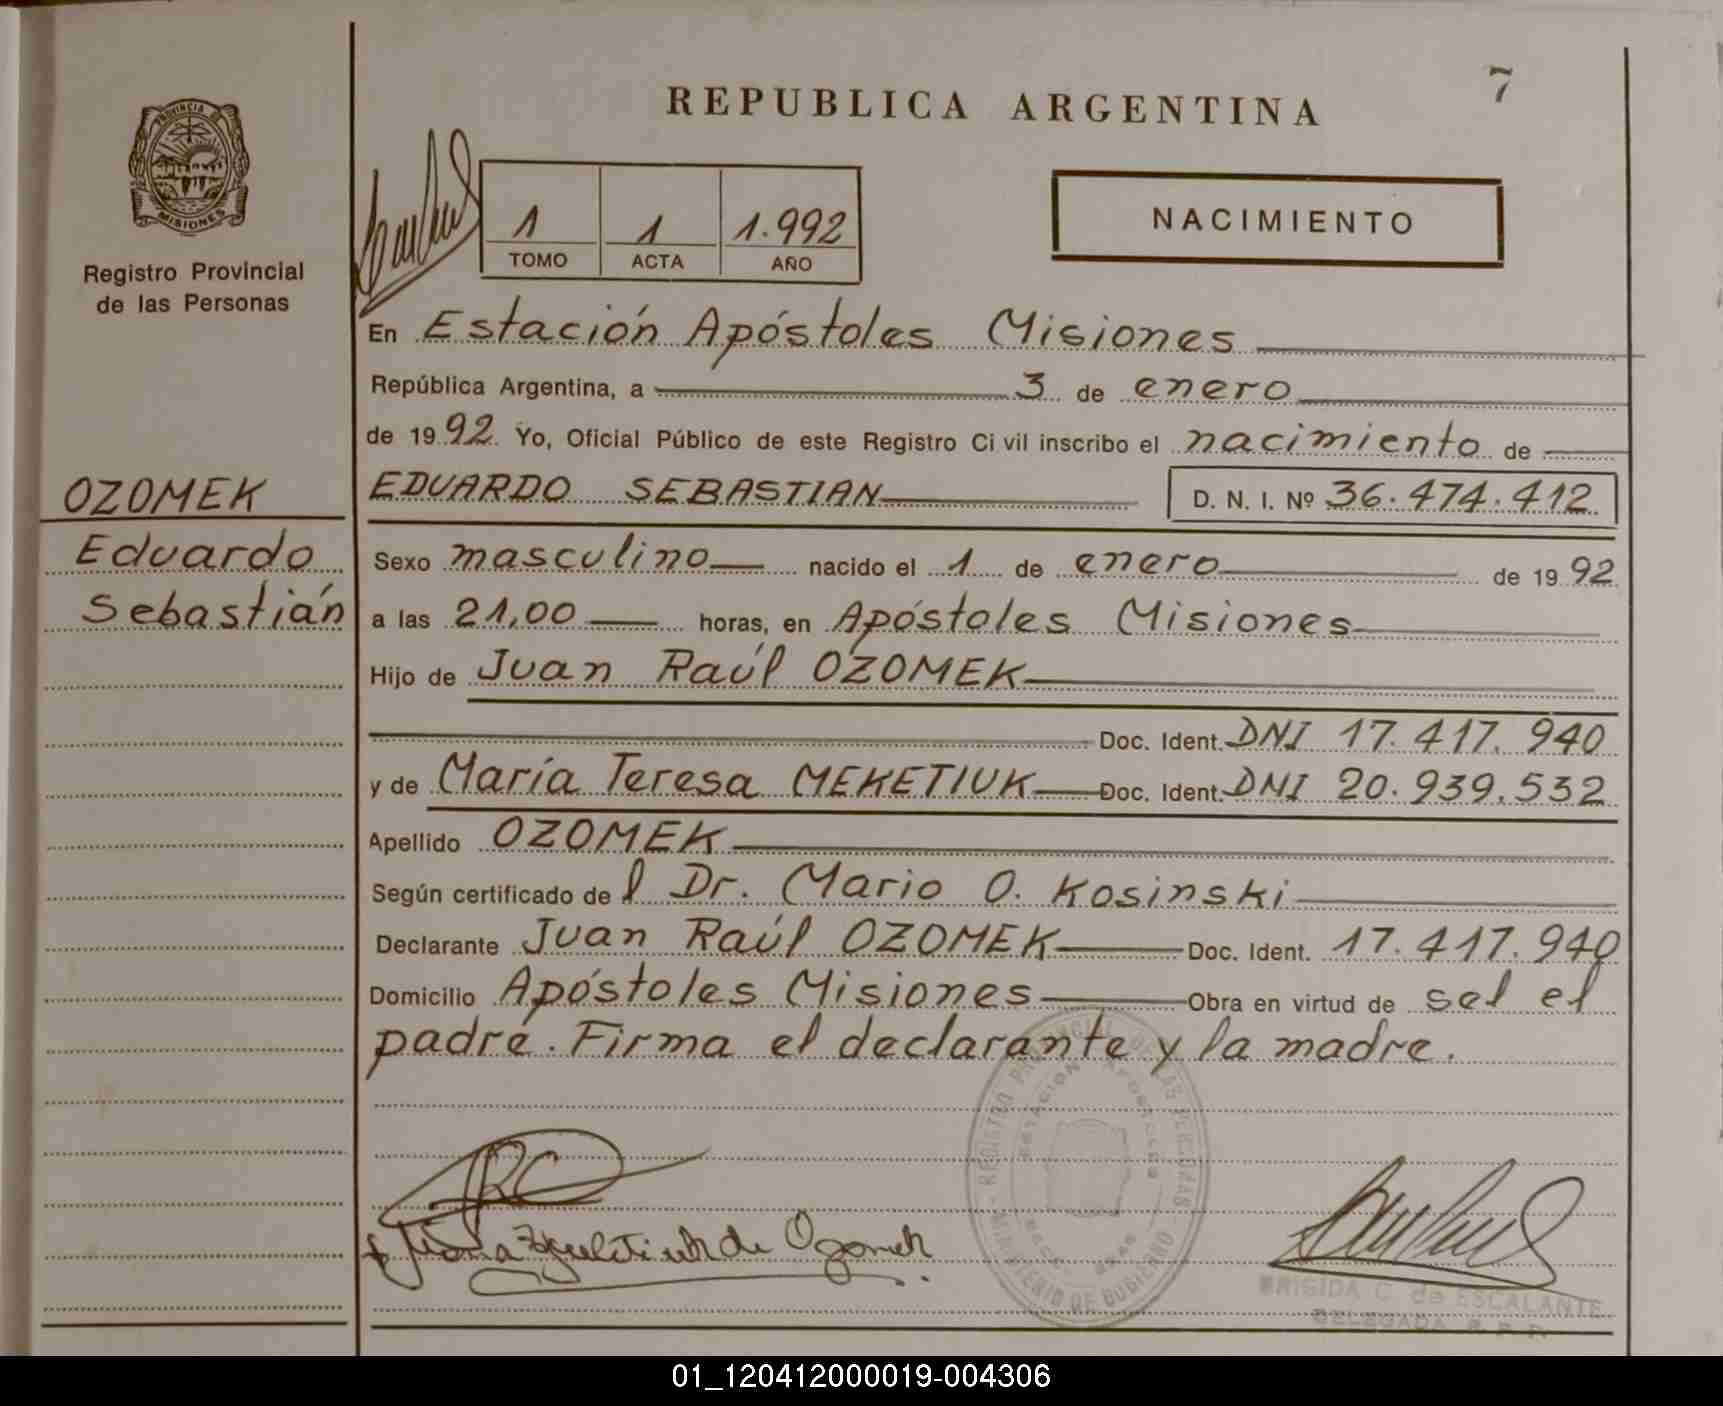 7
REPUBLICA ARGENTINA
PROVINCIA DE
MISIONES
Registro Provincial
de las Personas
1 1 1.992
TOMO ACTA AÑO
NACIMIENTO
En Estación Apóstoles Misiones
República Argentina, a 3 de enero
de 1992 Yo, Oficial Público de este Registro Civil inscribo el nacimiento de
OZOMEK
Eduardo
Sebastián
EDUARDO SEBASTIAN D. N. I. Nº 36.474.412
Sexo masculino nacido el 1 de enero de 1992
a las 21,00 horas, en Apóstoles Misiones
Hijo de Juan Raúl OZOMEK
Doc. Ident. DNI 17.417.940
y de María Teresa MEKETIUK Doc. Ident. DNI 20.939.532
Apellido OZOMEK
Según certificado del Dr. Mario O. Kosinski
Declarante Juan Raúl OZOMEK Doc. Ident. 17.417.940
Domicilio Apóstoles Misiones Obra en virtud de sel el
padre. Firma el declarante y la madre.
REGISTRO PROVINCIAL DE LAS PERSONAS
ESTACION APOSTOLES
MINISTERIO DE GOBIERNO
de Ozomek
BRIGIDA C. de ESCALANTE
DELEGADA R. P. P.
01_120412000019-004306